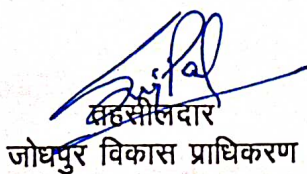 तहसीलदार
जोधपुर विकास प्राधिकरण